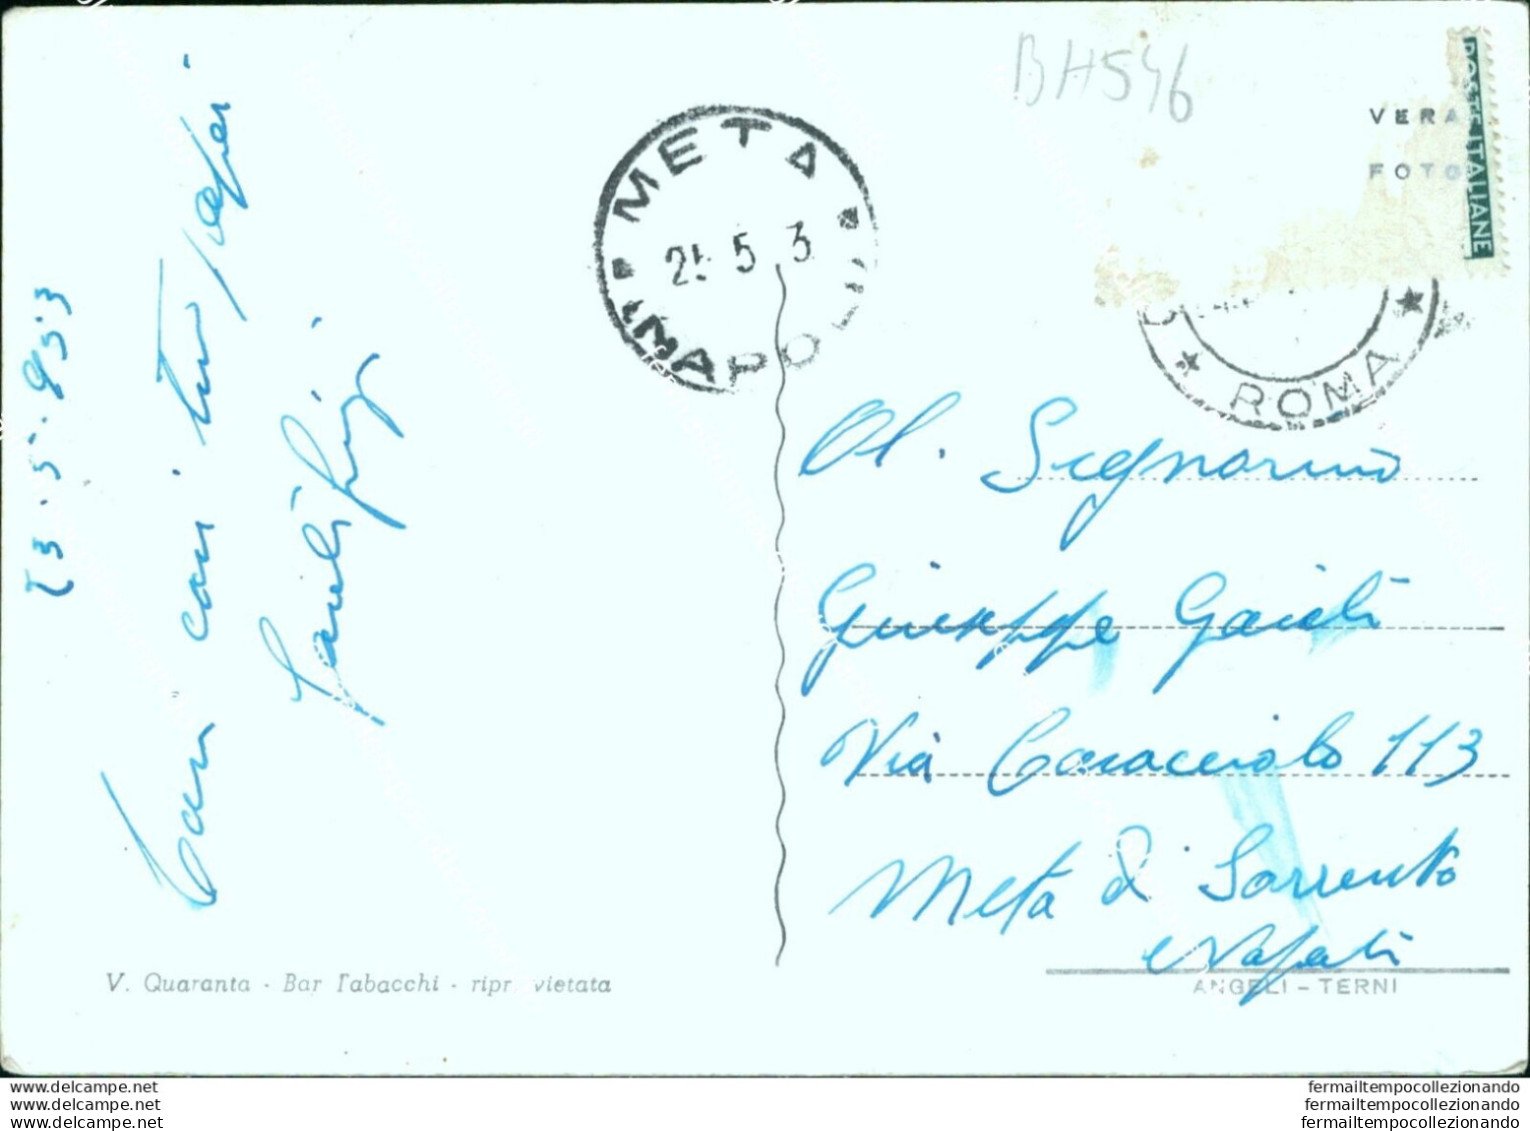 BH546
VERA
FOTO
POSTE ITALIANE
META
25 5 3
NAPOLI
ROMA
23.5.953
Cari
Al. Signorino
Giuseppe
Via Caracciolo 113
Meta di Sorrento
Napoli
V. Quaranta - Bar Tabacchi - ripr. vietata
ANGELI - TERNI
www.delcampe.net
www.delcampe.net
www.delcampe.net
fermailtempocollezionando
fermailtempocollezionando
fermailtempocollezionando